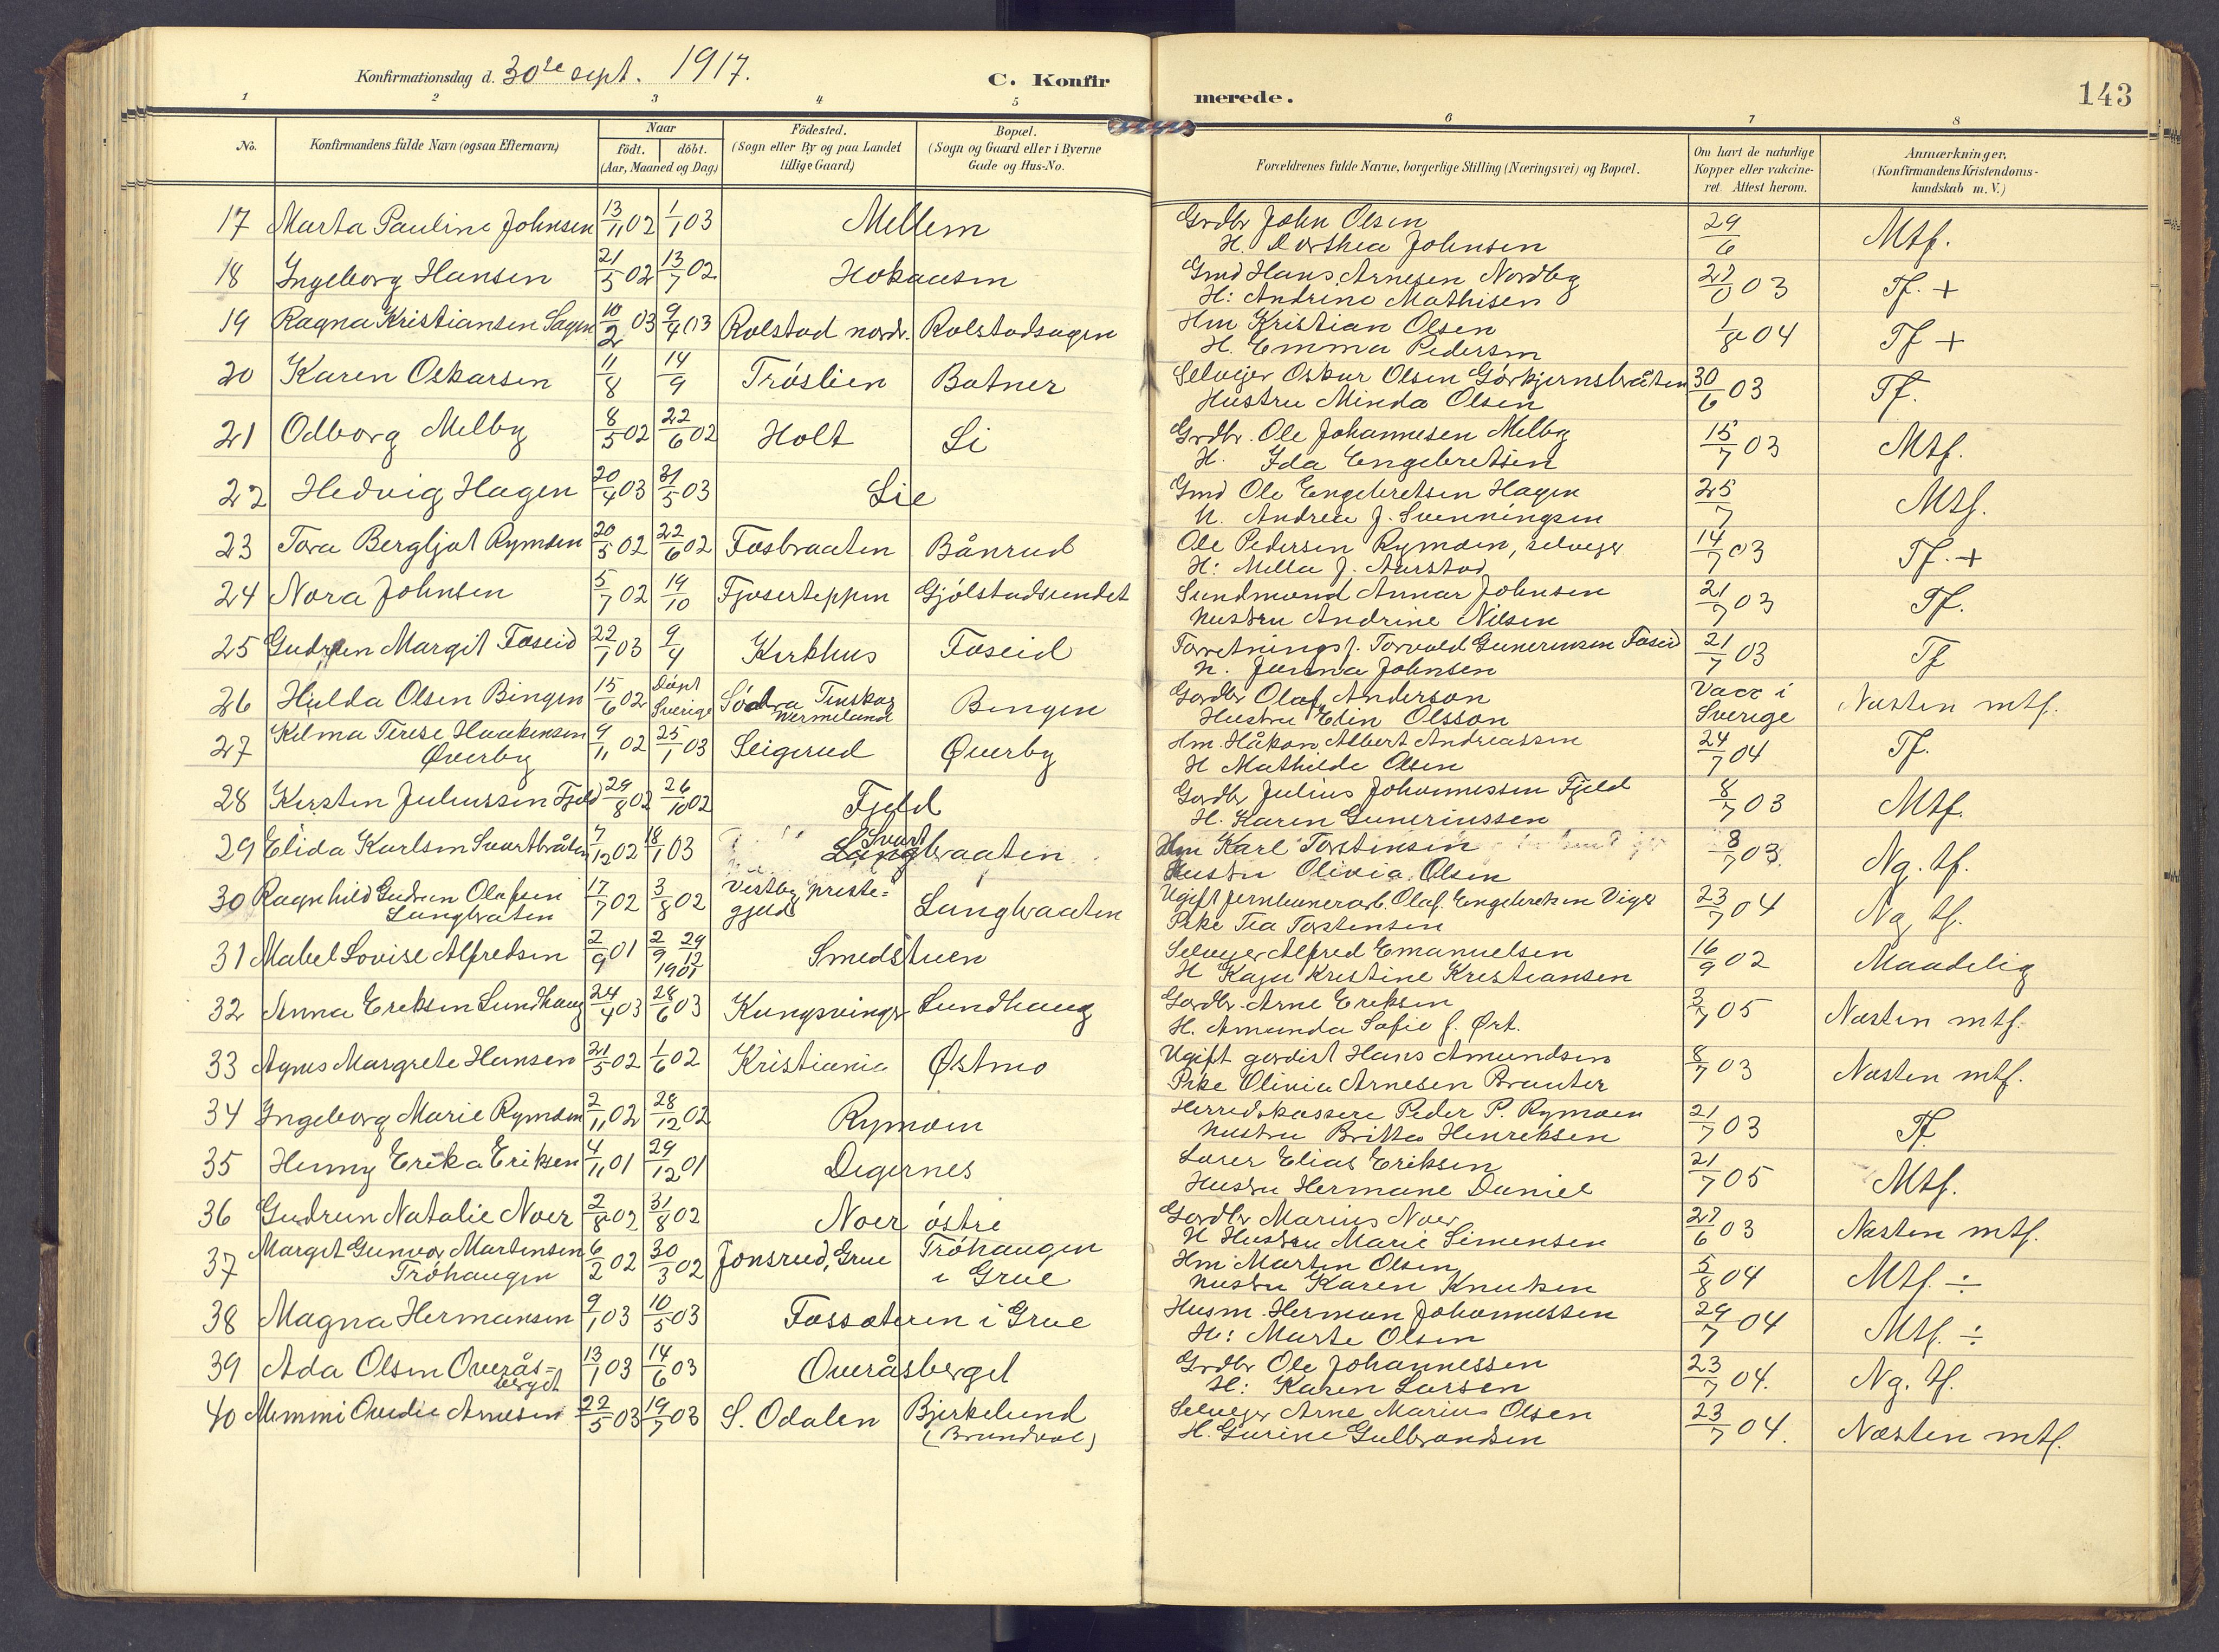 Konfirmationsdag d. 30te sept. 1917.
C. Konfirmerede.
143
1 2 3 4 5 6 7 8
No. Konfirmandens fulde Navn (ogsaa Efternavn) Naar födt. döbt. (Aar, Maaned og Dag) Födested. (Sogn eller By og paa Landet tillige Gaard) Bopæl. (Sogn og Gaard eller i Byerne Gade og Hus-No. Forældrenes fulde Navne, borgerlige Stilling (Næringsvei) og Bopæl. Om havt de naturlige Kopper eller vakcineret. Attest herom. Anmærkninger, (Konfirmandens Kristendomskundskab m. V.)
17 Marta Pauline Johnsen 13/11 02 1/1 03 Mellem Grdbr John Olsen 29/6 Mtf.
H. Dorthea Johnsen
18 Ingeborg Hansen 21/5 02 13/7 02 Hokaasen Gmd Hans Arnesen Nordby 03 Tf. +
H: Andrine Mathisen
19 Ragna Kristiansen Sagen 10/2 03 9/4 03 Rolstad nordr. Rolstadsagen Hm Kristian Olsen 1/8 04 Tf +
H. Emma Pedersen
20 Karen Oskarsen 11/8 14/9 Tröslien Botner Selveier Oskar Olsen Görkjernsbråten 30/6 03 Tf.
Hustru Minda Olsen
21 Odborg Melby 8/5 02 22/6 02 Holt Li Grdbr. Ole Johannesen Melby 15/7 03 Mtf.
H. Ida Engebretsen
22 Hedvig Hagen 20/4 03 31/5 03 Lie Gmd Ole Engebretsen Hagen 25/7 Mtf.
H. Andrea J. Svenningsen
23 Tora Bergljot Rymoen 20/5 02 22/6 02 Fosbraaten Bånrud Ole Pedersen Rymoen, selveier 14/7 03 Tf. +
H: Mella J. Aarstad
24 Nora Johnsen 5/7 02 19/10 Fjoserteppen Gjölstadsundet Sundmand Annar Johnsen 21/7 03 Tf.
Hustru Andrine Nilsen
25 Gudrun Margit Foseid 22/1 03 9/4 Kirkhus Foseid Forretningsf. Torvald Gunerussen Foseid 21/7 03 Tf
H. Johnsen
26 Hulda Olsen Bingen 15/6 02 Döpt Sverige Södra Finskog Wermeland Bingen Gardbr Olaf Anderson Vacc i Sverige Næsten mtf.
Hustru Edin Olsson
27 Kilma Terese Haakensen Øverby 9/11 02 25/1 03 Seigerud Øverby Hm. Håkon Albert Andreassen 24/7 04 Tf.
H Mathilde Olsen
28 Kirsten Juliussen Fjeld 29/8 02 26/10 02 Fjeld Gardbr Julius Johannessen Fjeld 8/7 03 Mtf.
H. Karen Gunerinssen
29 Elida Karlsen Svartbråten 7/12 02 18/1 03 Svartbraaten Hm Karl Torstensen 8/7 03. Ng. tf.
Hustru Olivia Olsen
30 Ragnhild Gudrun Olafsen Langbraten 17/7 02 3/8 02 Vestby prestegjeld Langbraaten Ugift jernbanearb. Olaf Engebretsen Viger 23/7 04 Ng. tf.
Pike Tea Torstensen
31 Mabel Lovise Alfredsen 2/9 01 2/9 29/12 1901 Smedstuen Selveier Alfred Emanuelsen 16/9 02 Maadelig
H Kaja Kristine Kristiansen
32 Anna Eriksen Lundhaug 24/4 03 28/6 03 Kongsvinger Lundhaug Gardbr. Arne Eriksen 3/7 05 Næsten mtf.
H. Amanda Sofie f. Ørt.
33 Agnes Margrete Hansen 21/5 02 1/6 02 Kristiania Østmo Ugift gardist Hans Amundsen 8/7 03 Næsten mtf.
Pike Olivia Arnesen Branter
34 Ingeborg Marie Rymoen 2/11 02 28/12 02 Rymoen Herredskassere Peder P. Rymoen 21/7 03 Tf.
Hustru Britta Henriksen
35 Henny Erika Eriksen 4/11 01 29/12 01 Digernes Lærer Elias Eriksen 21/7 05 Mtf.
Hustru Hermane Daniel
36 Gudrun Natalie Noer 2/8 02 31/8 02 Noer östre Gardbr Marius Noer 27/6 03 Næsten mtf.
H Hustru Marie Simensen
37 Margit Gunvor Martinsen Tröhaugen 6/2 02 30/3 02 Jonsrud, Grue Tröhaugen i Grue Hm Martin Olsen 5/8 04 Mtf. ÷
Hustru Karen Knutsen
38 Magna Hermansen 9/1 03 10/5 03 Fossæteren i Grue Husm. Herman Johannessen 29/7 04 Mtf. ÷
H: Marte Olsen
39 Ada Olsen Overåsberget 13/1 03 14/6 03 Overåsberget Grdbr Ole Johannessen 23/7 04. Ng. tf.
H: Karen Larsen
40 Mimmi Ovedie Arnesen 22/5 03 19/7 03 S. Odalen Bjerkelund (Brandval) Selveier Arne Marius Olsen 23/7 04. Næsten mtf.
H. Gurine Gulbrandsen